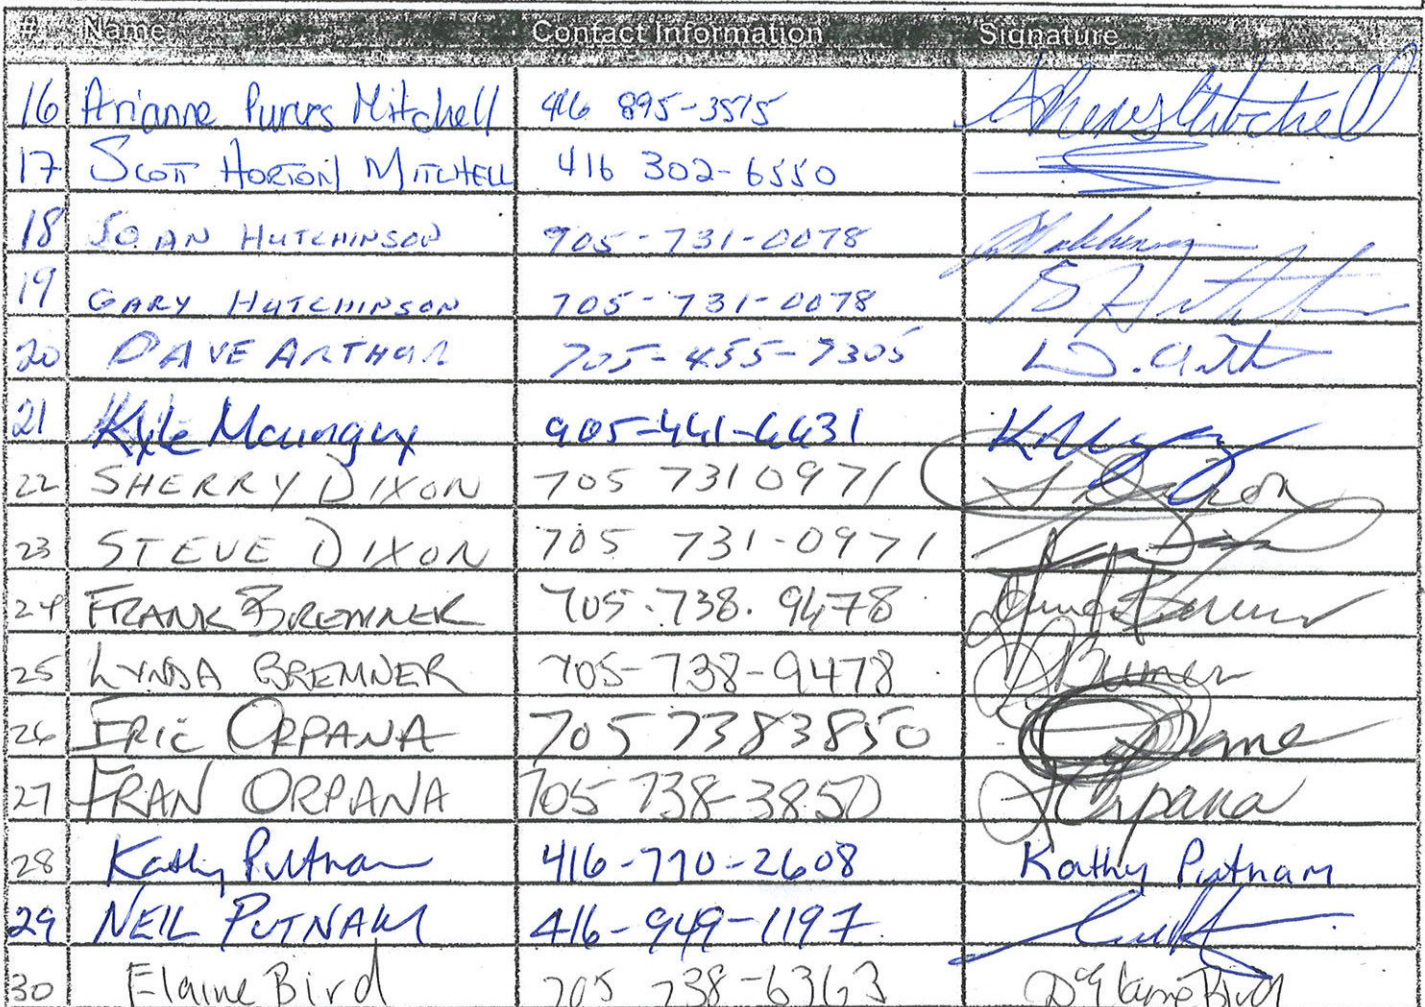 # Name Contact Information Signature
16 Arianne Purves Mitchell 416 895-3515
17 SCOTT HORTON MITCHELL 416 302-6550
18 JOAN HUTCHINSON 905-731-0078
19 GARY HUTCHINSON 705-731-0078
20 DAVE ARTHUR 705-455-9305 D. Arth
21 Kyle 905-441-6631
22 SHERRY DIXON 705 731 0971 S Dixon
23 STEVE DIXON 705 731-0971
24 FRANK BREMNER 705.738.9478
25 LYNDA BREMNER 705-738-9478
26 ERIC ORPANA 705 738 3850
27 FRAN ORPANA 705 738-3850 F Orpana
28 Kathy Putnam 416-770-2608 Kathy Putnam
29 NEIL PUTNAM 416-949-1197
30 Elaine Bird 705 738-6363 Elaine Bird